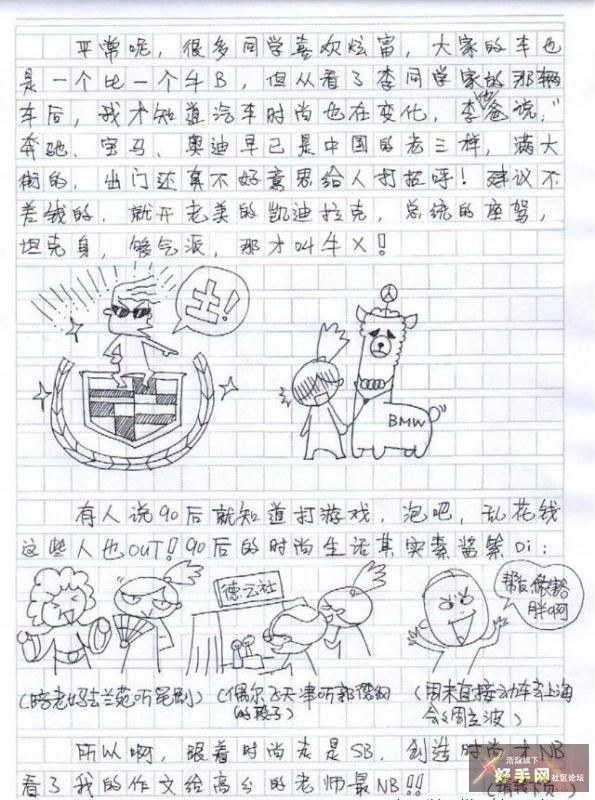 平常呢，很多同学喜欢炫富，大家的车也
是一个比一个牛B，但从看了李同学家的那辆
车后，我才知道汽车时尚也在变化，李他爸说，"
奔驰、宝马、奥迪早已是中国的老三样，满大
街的，出门还真不好意思给人打招呼！建议不
差钱的，就开老美的凯迪拉克，总统的座驾，
坦克身，够气派，那才叫牛X！
土！
BMW
有人说90后就知道打游戏，泡吧，乱花钱
这些人也OUT！90后的时尚生活其实素酱紫Di：
德云社
(陪老妈去兰苑听昆剧)
(偶尔飞天津听郭德纲
的段子)
(周末直接动车去上海
会会周立波)
所以啊，跟着时尚走是SB，创造时尚才NB
看了我的作文给高分的老师最NB!!
浩瀚旗下
好手网
社区论坛